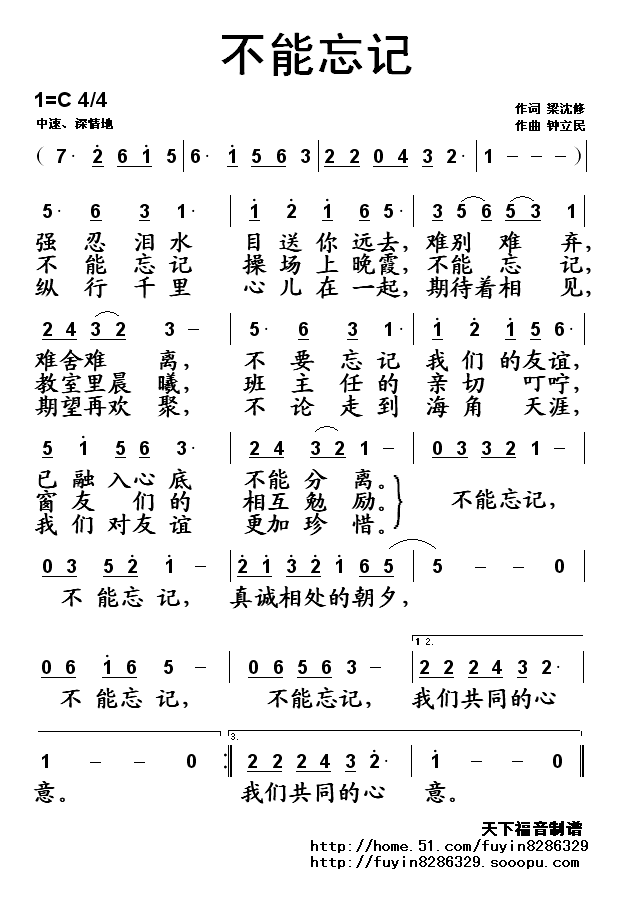 不能忘记
1=C 4/4
作词 梁沈修
中速、深情地
作曲 钟立民
( 7· 2 6 1 5 | 6· 1 5 6 3 | 2 2 0 4 3 2· | 1 - - - ) |
5· 6 3 1· | 1 2 1 6 5· | 3 5 6 5 3 1
强忍泪水 目送你远去, 难别难弃,
不能忘记 操场上晚霞, 不能忘记,
纵行千里 心儿在一起, 期待着相见,
2 4 3 2 3 - | 5· 6 3 1· | 1 2 1 5 6· |
难舍难离, 不要忘记 我们的友谊,
教室里晨曦, 班主任的 亲切叮咛,
期望再欢聚, 不论走到 海角天涯,
5 1 5 6 3· | 2 4 3 2 1 - | 0 3 3 2 1 - |
已融入心底 不能分离。
窗友们的 相互勉励。 不能忘记,
我们对友谊 更加珍惜。
0 3 5 2 1 - | 2 1 3 2 1 6 5 | 5 - - 0 |
不能忘记, 真诚相处的朝夕,
1 2.
0 6 1 6 5 - | 0 6 5 6 3 - | 2 2 2 4 3 2· |
不能忘记, 不能忘记, 我们共同的心
3.
1 - - 0 :| 2 2 2 4 3 2· | 1 - - 0 ||
意。 我们共同的心 意。
天下福音制谱
http://home.51.com/fuyin8286329
http://fuyin8286329.sooopu.com